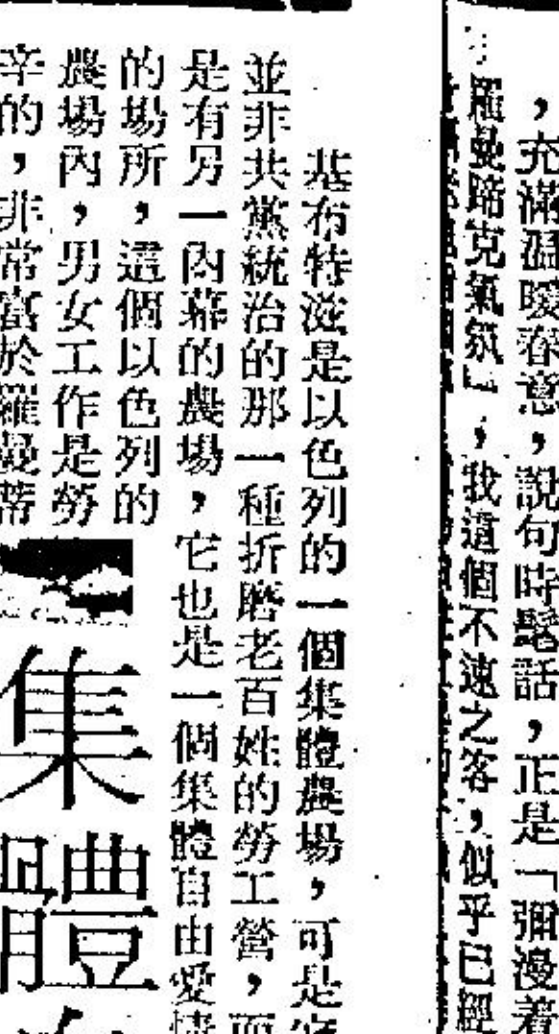 ，充滿溫暖春意，說句時髦話，正是「彌漫着
羅曼蹄克氣氛」，我這個不速之客，似乎已經
基布特滋是以色列的一個集體農場，可是它
並非共黨統治的那一種折磨老百姓的勞工營，而
是有另一內幕的農場，它也是一個集體自由愛情
的場所，這個以色列的
農場內，男女工作是勞
辛的，非常富於羅曼蒂
集體